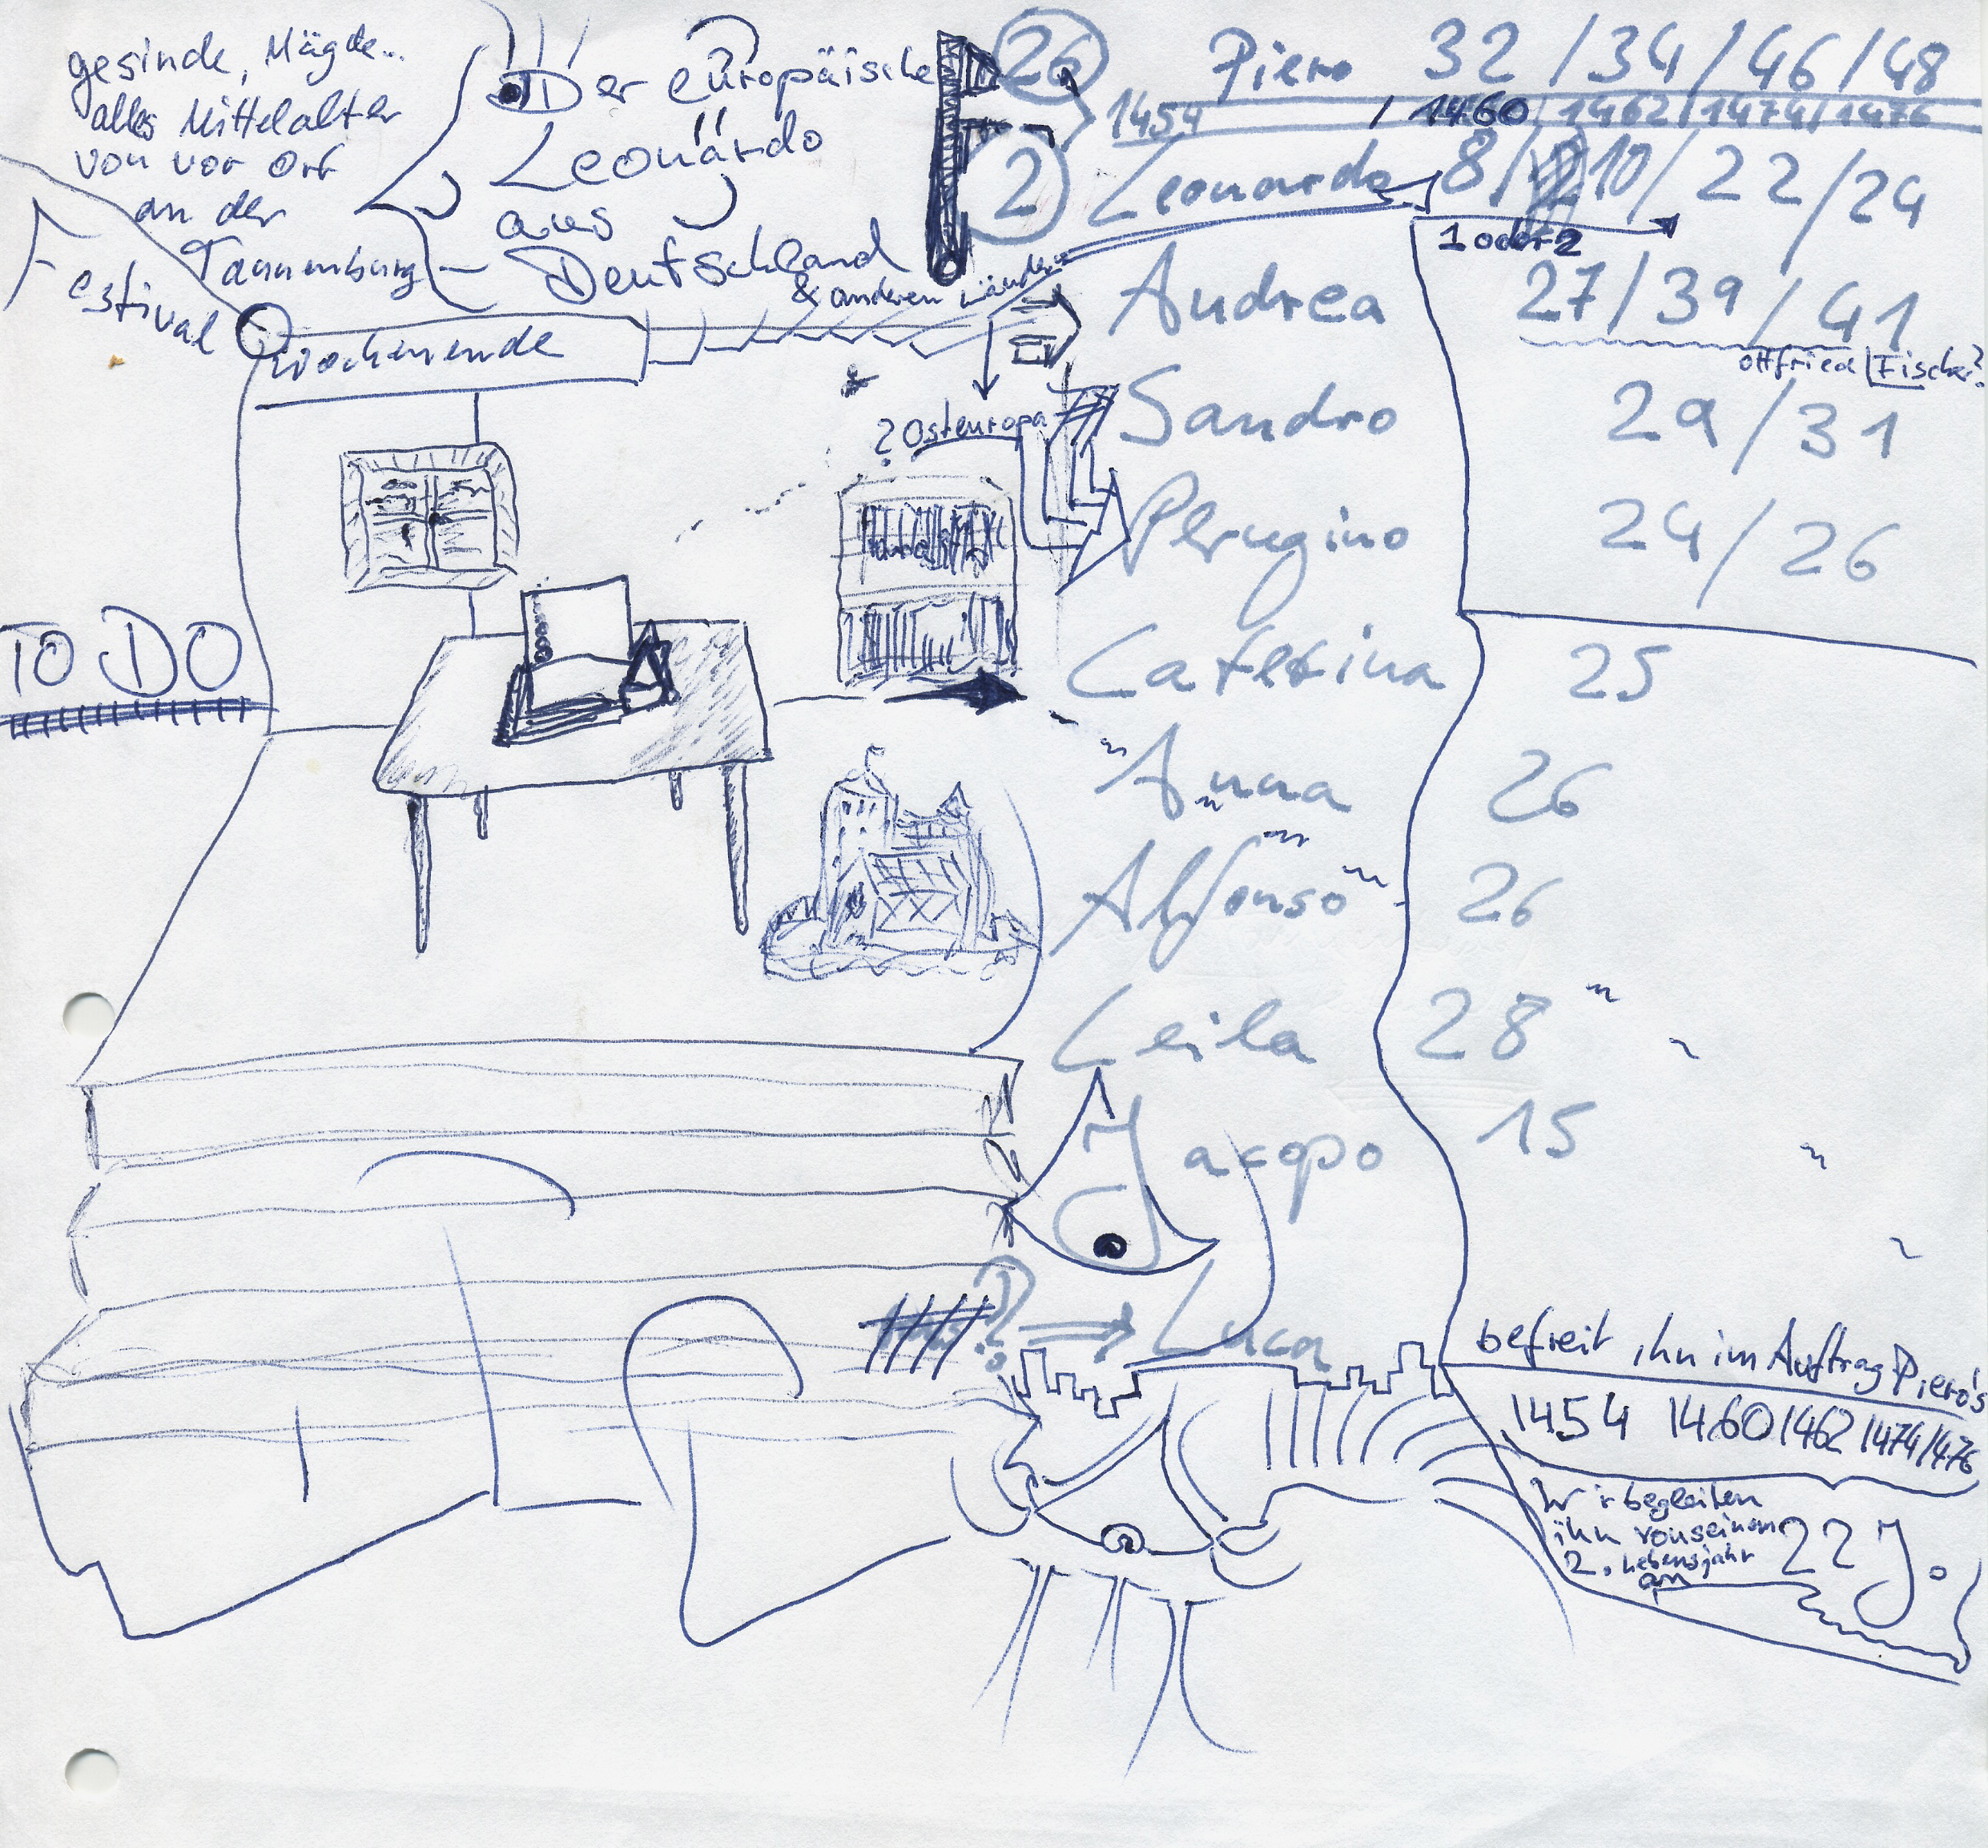 gesinde, Mägde..
alles Mittelalter
von vor Ort
an der
Tannenburg
Festival
Wochenende
Der europäische
Leonardo
aus
Deutschland
& anderen Ländern
? Osteuropa
TO DO
26 Piero 32 / 34 / 46 / 48
1454 / 1460 / 1462 / 1474 / 1476
2 Leonardo 8 / 10 / 22 / 24
1 oder 2
Andrea 27 / 39 / 41
Ottfried Fischer?
Sandro 29 / 31
Perugino 24 / 26
Caterina 25
Anna 26
Alfonso 26
Leila 28
Jacopo 15
? ⇒ Luca
befreit ihn im Auftrag Piero's
1454 1460 1462 1474/1476
Wir begleiten
ihn von seinem
2. Lebensjahr
an
22 J.